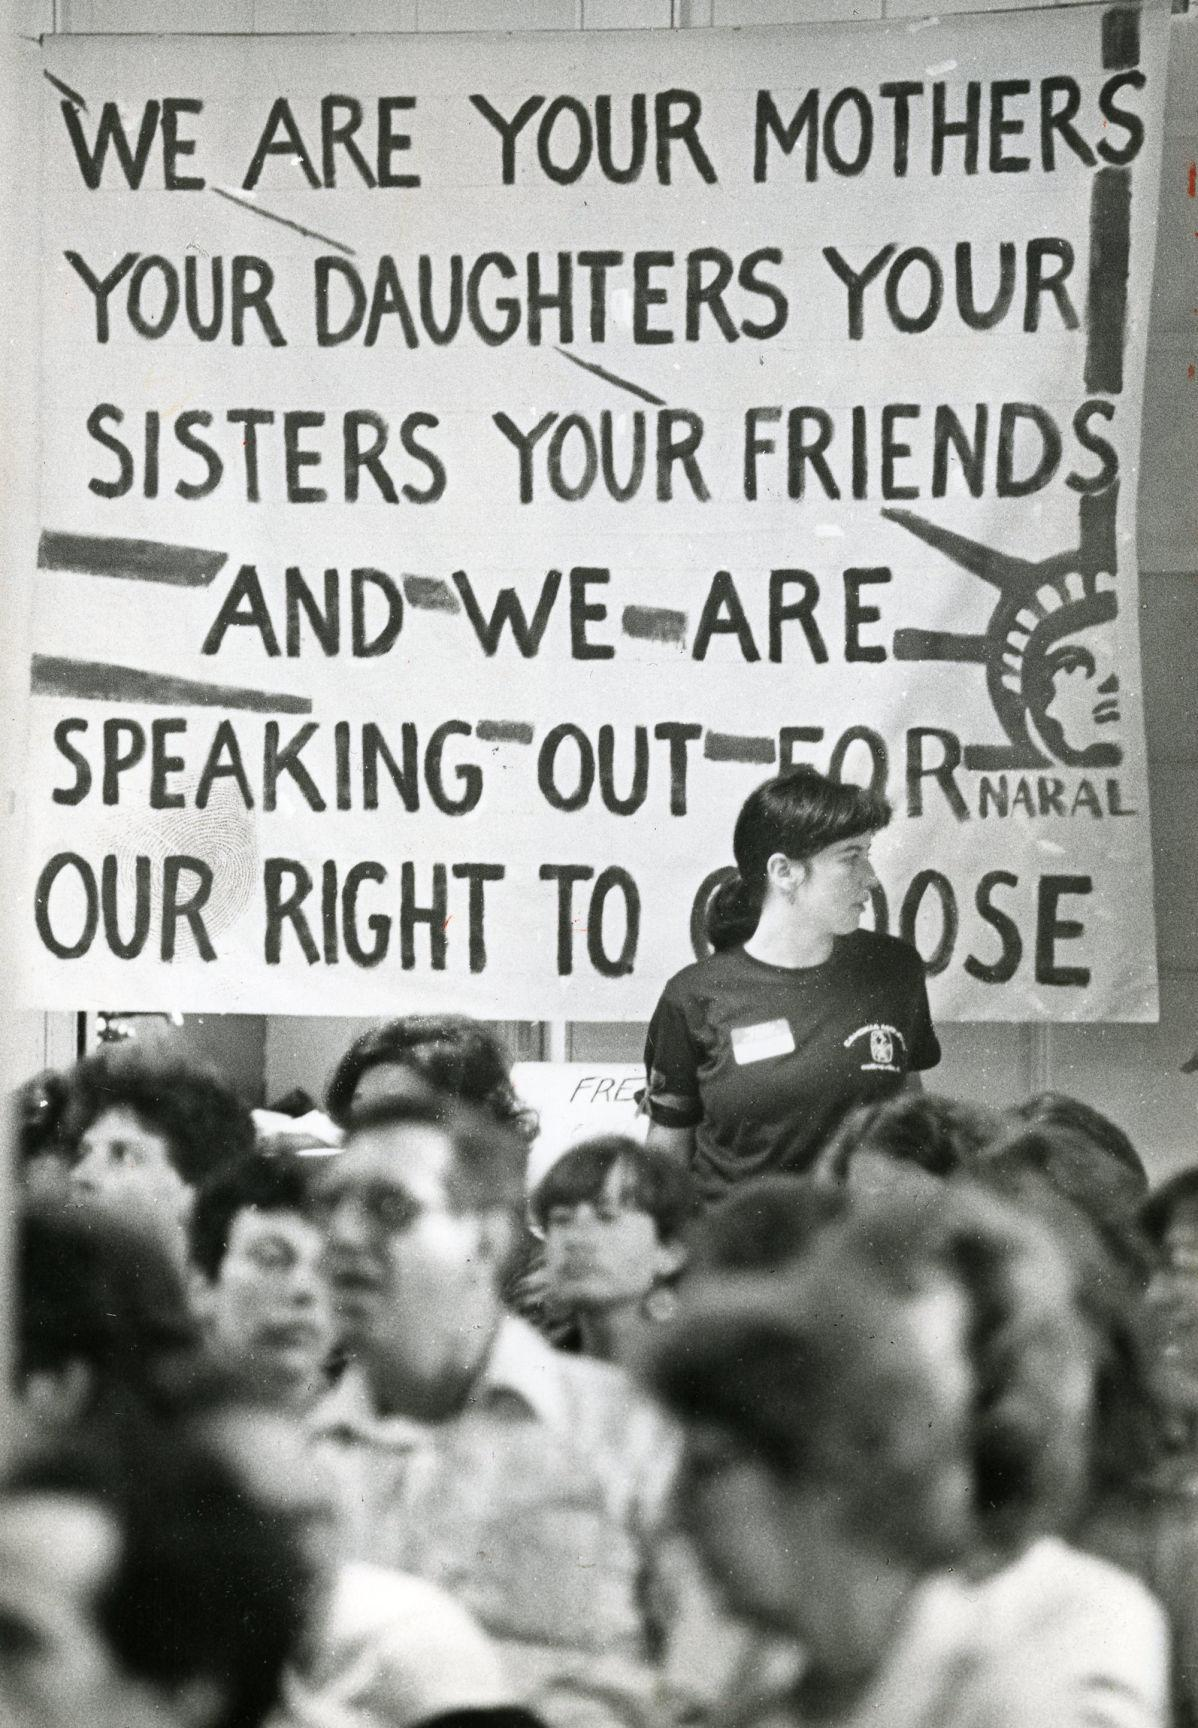 WE ARE YOUR MOTHERS
YOUR DAUGHTERS YOUR
SISTERS YOUR FRIENDS
AND WE ARE
SPEAKING OUT FOR
NARAL
OUR RIGHT TO C OOSE
FRE